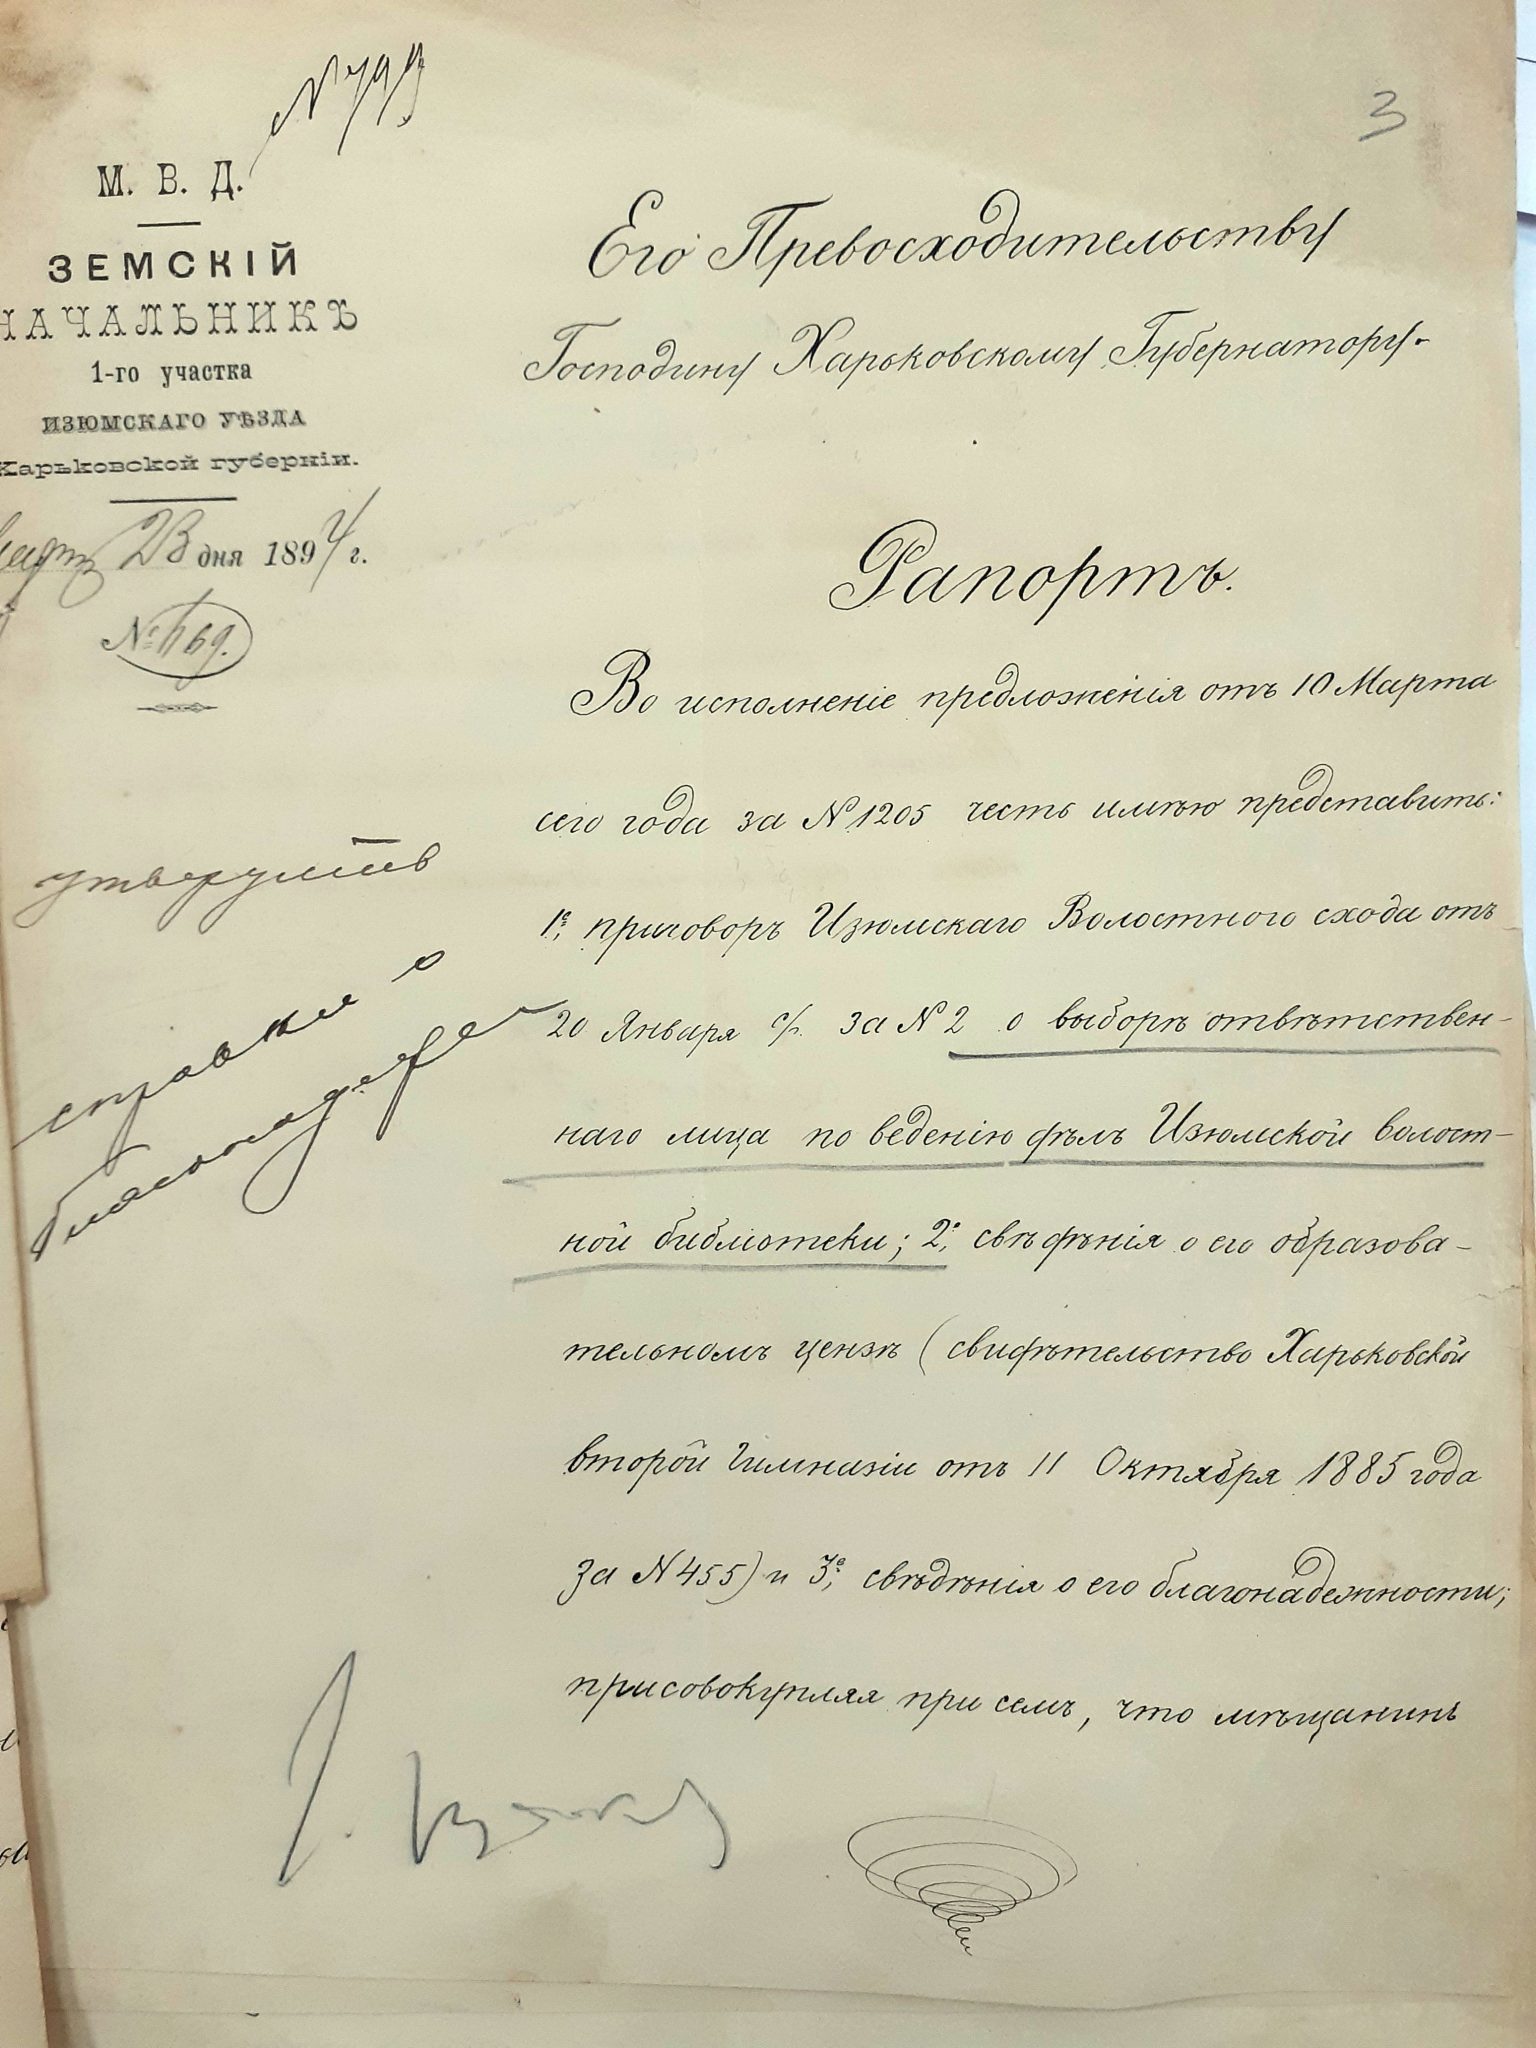 3
М. В. Д.
ЗЕМСКІЙ
НАЧАЛЬНИКЪ
1-го участка
ИЗЮМСКАГО УѢЗДА
Харьковской губерніи.
23 дня 1894 г.
№ 1169.
Его Превосходительству
Господину Харьковскому Губернатору.
Рапортъ.
Во исполненіе предложенія отъ 10 Марта
сего года за № 1205 честь имѣю представить:
1е, приговоръ Изюмскаго Волостного схода отъ
20 Января с/г. за № 2 о выборѣ отвѣтствен-
наго лица по веденію дѣлъ Изюмской волост-
ной библіотеки; 2е, свѣдѣнія о его образова-
тельномъ цензѣ (свидѣтельство Харьковской
второй Гимназіи отъ 11 Октября 1885 года
за № 455) и 3е, свѣдѣнія о его благонадежности;
присовокупляя при семъ, что мѣщанинъ
справки о